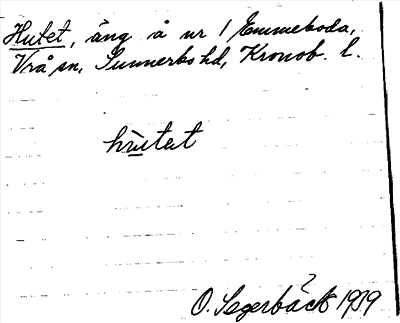 Hutet, äng å nr 1 Emmeboda,
Vrå sn, Sunnerbo hd, Kronob. l.
hu̲tat
O. Segerbäck 1939